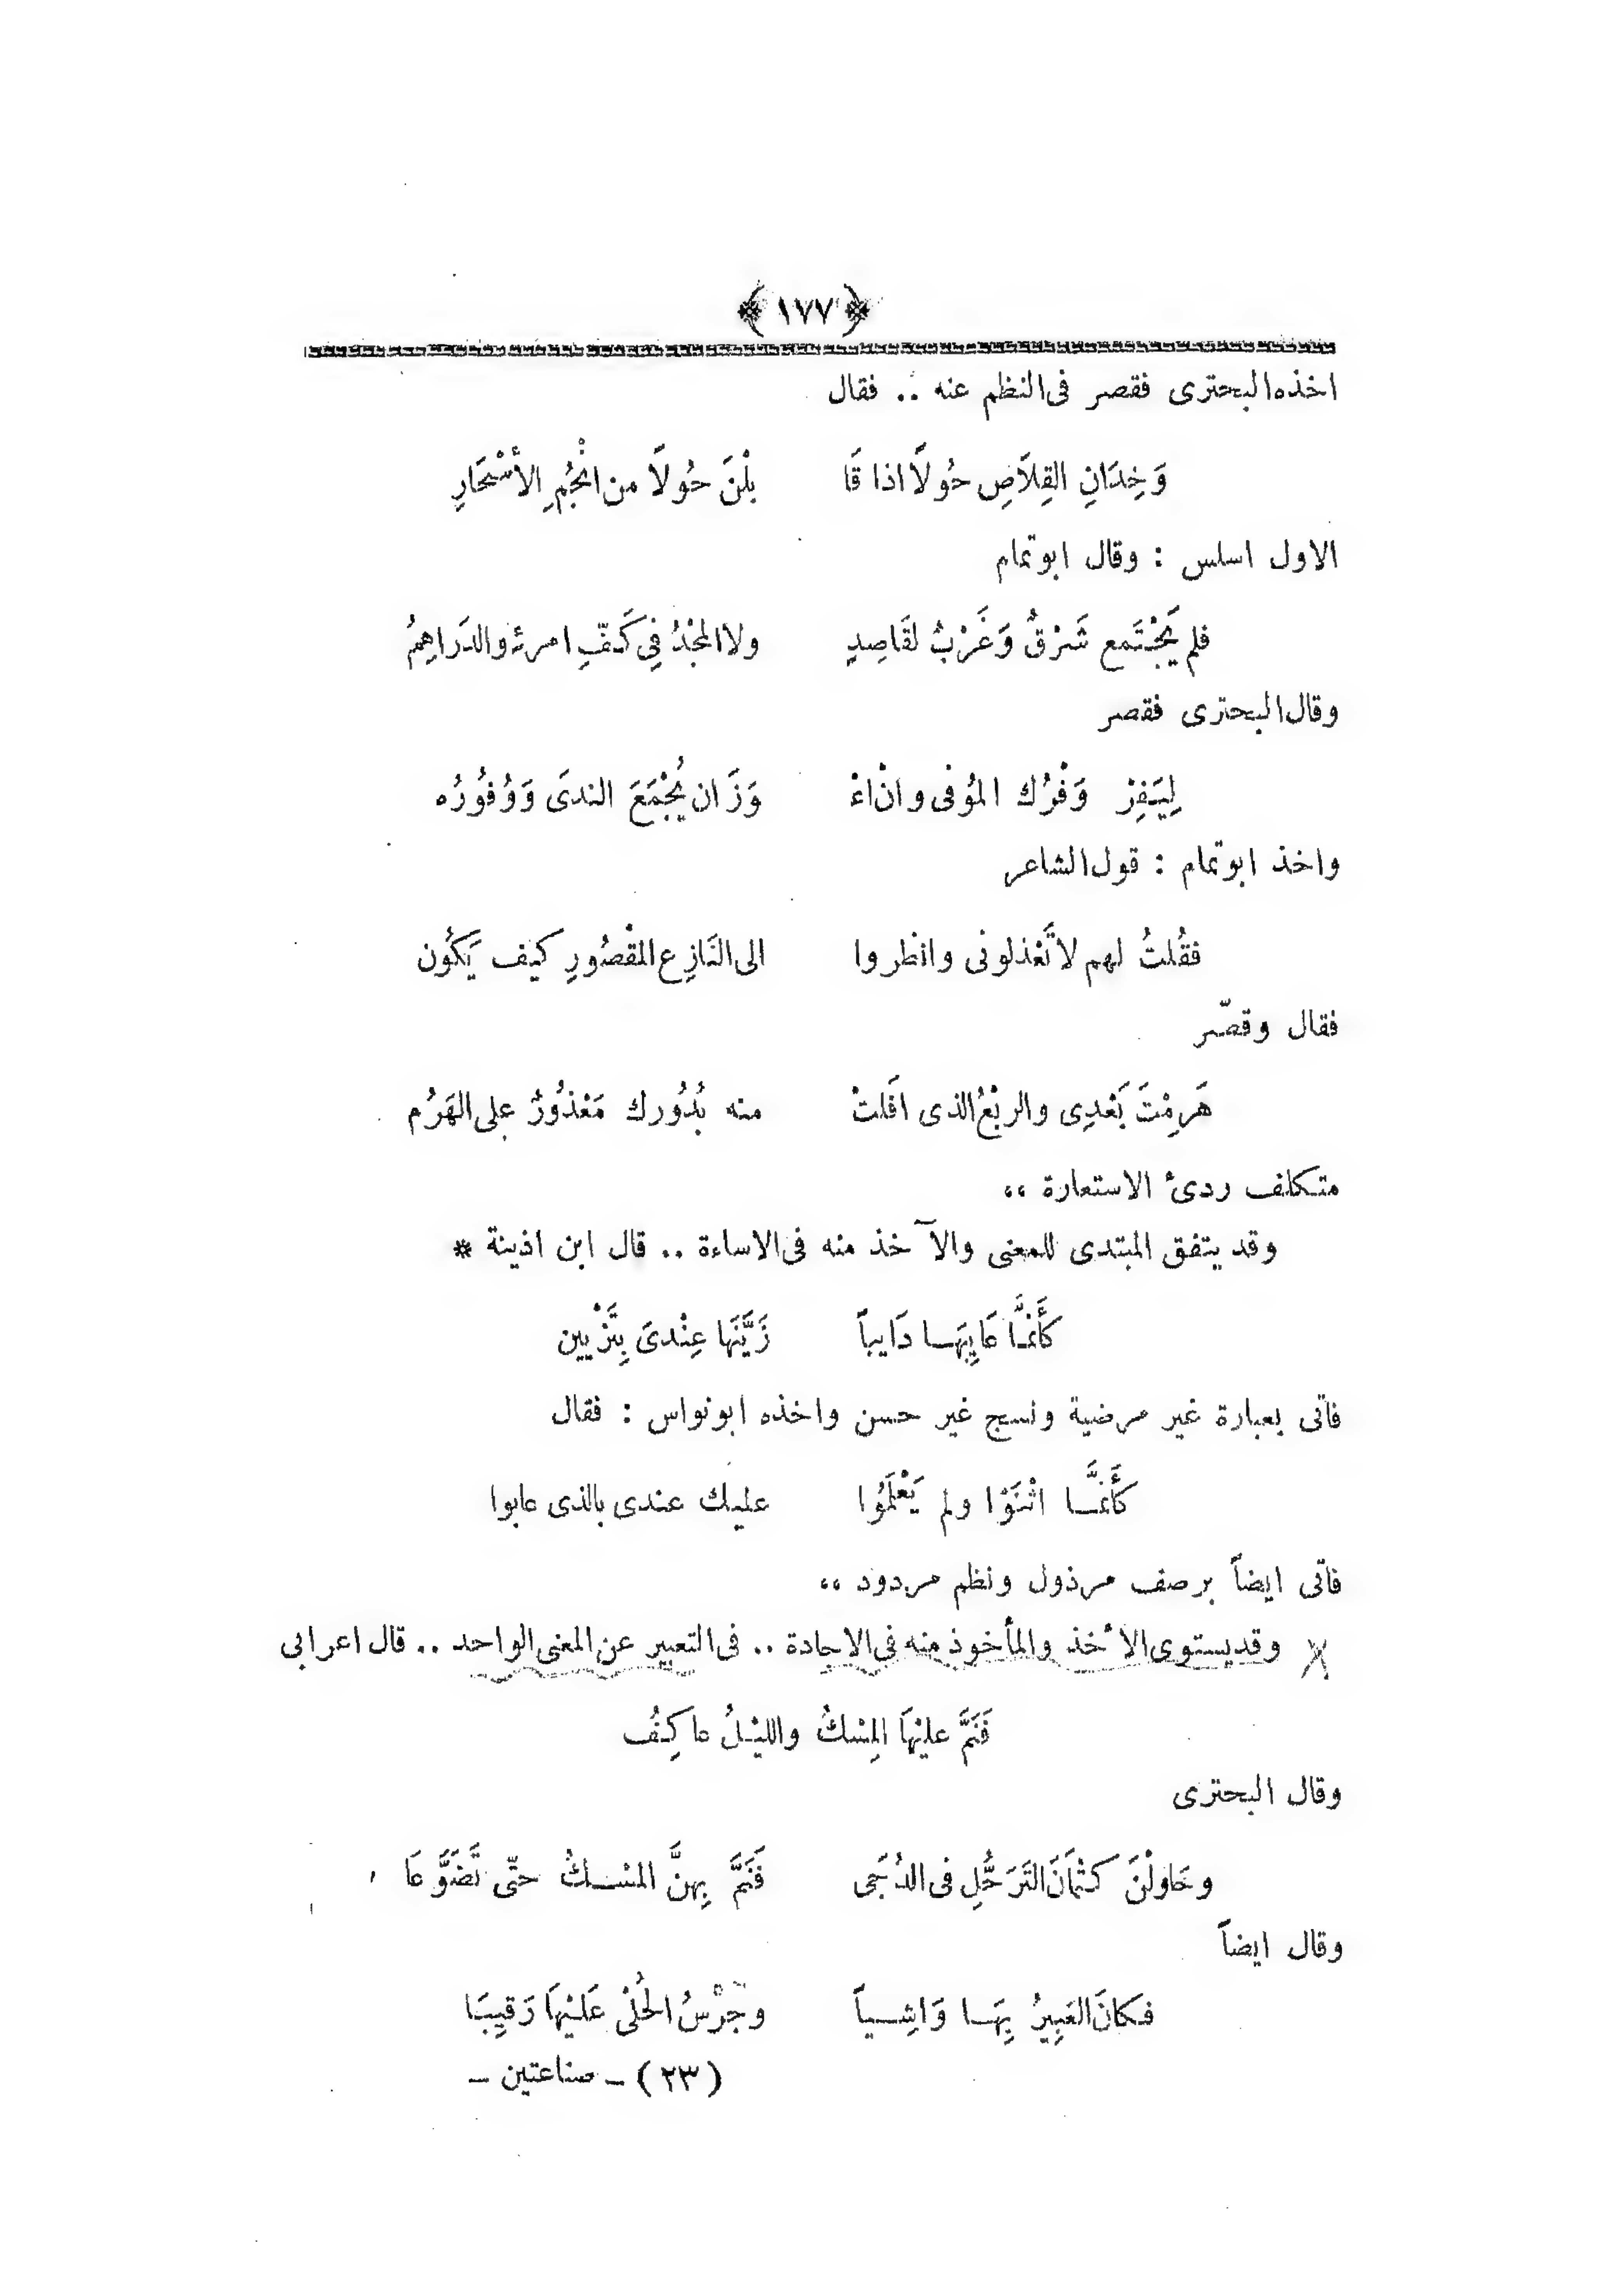 ﴿ ١٧٧ ﴾
اخذه البحترى فقصر فى النظم عنه .. فقال
وَخِدَانِ القِلاَصِ حُولاً اذا قَا بلْنَ حُولاً من انْجُمِ الأسْحَارِ
الاول اسلس : وقال ابو تمام
فلم يَجْتَمع شَرْقٌ وَغَرْبٌ لقَاصِدٍ ولا المجْدُ فِي كَفّ امرئ والدَراهِمُ
وقال البحترى فقصر
لِيَفِرْ وَفْرُك المُوفى وانْ اءْ وَزَ ان يُجْمَعَ الندىَ وَوُفُورُه
واخذ ابو تمام : قول الشاعر
فقُلتُ لهم لا تَعْذلونى وانظروا الى النَازِع المقْصُورِ كيف يَكُون
فقال وقصّر
هَرِمْتَ بَعْدِى والربْعُ الذى افَلتْ منه بُدُورك مَعْذُورٌ على الهَرُم
متكلف ردىء الاستعارة ،،
وقد يتفق المبتدى للمعنى والآخذ منه فى الاساءة .. قال ابن اذينة *
كأَنمَّا عَايِبهَا دَايباً زَيَّنَها عِنْدىَ بِتَزْيين
فاتى بعبارة غير مرضية ونسج غير حسن واخذه ابو نواس : فقال
كأَنمَّا اثْنَوْا ولم يَعْلَمُوا عليك عندى بالذى عابوا
فاتى ايضاً برصف مرذول ونظم مردود ،،
وقد يستوى الاخذ والمأخوذ منه فى الاجادة .. فى التعبير عن المعنى الواحد .. قال اعرابى
فَنَمَّ عليْهَا المِسْكُ والليْلُ عاكِفُ
وقال البحترى
وحَاولْنَ كتْمَانَ التَرَحُّلِ فى الدُجَى فَنَمَّ بِهنَّ المسْكُ حتّى تَضَوَّعَا
وقال ايضاً
فكانَ العَبِيرُ بِهَا وَاشِياً وجَرْسُ الحُلْى عَليْهَا رَقيِبَا
(٢٣) ـ صناعتين ـ